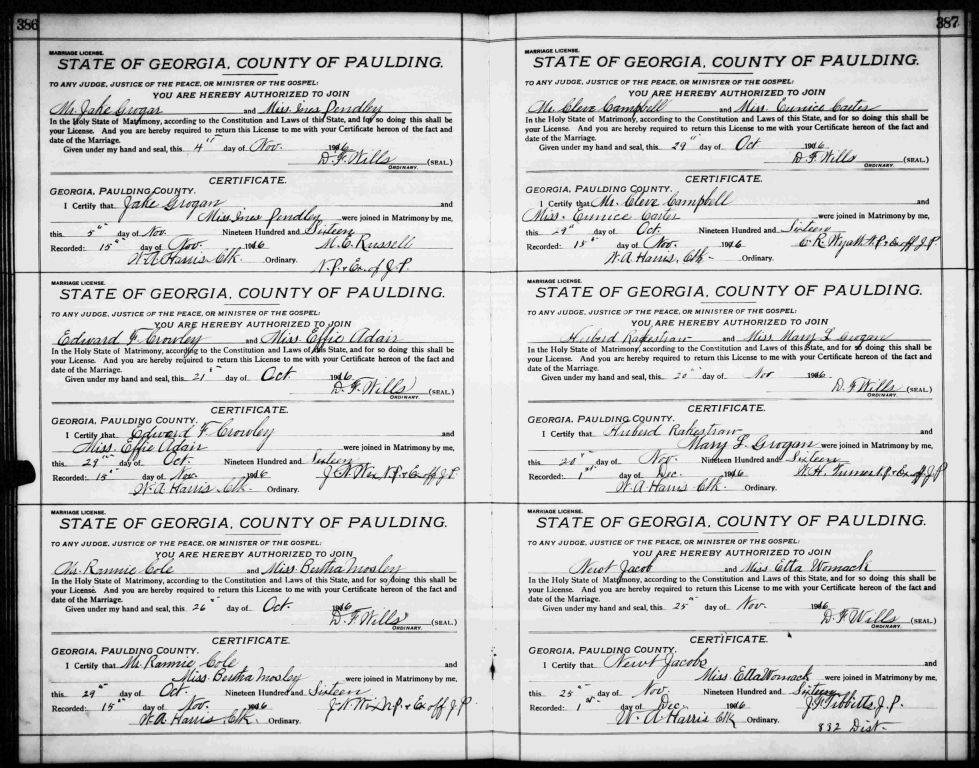 386
MARRIAGE LICENSE.
STATE OF GEORGIA, COUNTY OF PAULDING.
TO ANY JUDGE, JUSTICE OF THE PEACE, OR MINISTER OF THE GOSPEL:
YOU ARE HEREBY AUTHORIZED TO JOIN
Mr. Jake Grogan and Miss. Ines Pendley
In the Holy State of Matrimony, according to the Constitution and Laws of this State, and for so doing this shall be
your License. And you are hereby required to return this License to me with your Certificate hereon of the fact and
date of the Marriage.
Given under my hand and seal, this 4th day of Nov. 1916
D. F. Wills (SEAL.)
ORDINARY.
CERTIFICATE.
GEORGIA, PAULDING COUNTY.
I Certify that Jake Grogan and
Miss Ines Pendley were joined in Matrimony by me,
this 5th day of Nov. Nineteen Hundred and Sixteen
Recorded: 15th day of Nov. 1916 M. C. Russell
W. A. Harris Clk. Ordinary. N. P. & Ex. of J. P.
MARRIAGE LICENSE.
STATE OF GEORGIA, COUNTY OF PAULDING.
TO ANY JUDGE, JUSTICE OF THE PEACE, OR MINISTER OF THE GOSPEL:
YOU ARE HEREBY AUTHORIZED TO JOIN
Edward F. Crowley and Miss Effie Adair
In the Holy State of Matrimony, according to the Constitution and Laws of this State, and for so doing this shall be
your License. And you are hereby required to return this License to me with your Certificate hereon of the fact and
date of the Marriage.
Given under my hand and seal, this 21st day of Oct 1916
D. F. Wills (SEAL.)
ORDINARY.
CERTIFICATE.
GEORGIA, PAULDING COUNTY.
I Certify that Edward F. Crowley and
Miss. Effie Adair were joined in Matrimony by me,
this 29th day of Oct. Nineteen Hundred and Sixteen
Recorded: 15 day of Nov. 1916 J. N. Wix N.P. & Ex off J. P
W. A. Harris Clk. Ordinary.
MARRIAGE LICENSE.
STATE OF GEORGIA, COUNTY OF PAULDING.
TO ANY JUDGE, JUSTICE OF THE PEACE, OR MINISTER OF THE GOSPEL:
YOU ARE HEREBY AUTHORIZED TO JOIN
Mr. Rannie Cole and Miss. Bertha Mosley
In the Holy State of Matrimony, according to the Constitution and Laws of this State, and for so doing this shall be
your License. And you are hereby required to return this License to me with your Certificate hereon of the fact and
date of the Marriage.
Given under my hand and seal, this 26th day of Oct. 1916
D. F. Wills (SEAL.)
ORDINARY.
CERTIFICATE.
GEORGIA, PAULDING COUNTY.
I Certify that Mr. Rannie Cole and
Miss. Bertha Mosley were joined in Matrimony by me,
this 29th day of Oct. Nineteen Hundred and Sixteen
Recorded: 15th day of Nov. 1916 J. N. Wix N.P. & Ex off J. P.
W. A. Harris Clk. Ordinary.
387
MARRIAGE LICENSE.
STATE OF GEORGIA, COUNTY OF PAULDING.
TO ANY JUDGE, JUSTICE OF THE PEACE, OR MINISTER OF THE GOSPEL:
YOU ARE HEREBY AUTHORIZED TO JOIN
Mr. Cleve Campbell and Miss. Eunice Carter
In the Holy State of Matrimony, according to the Constitution and Laws of this State, and for so doing this shall be
your License. And you are hereby required to return this License to me with your Certificate hereon of the fact and
date of the Marriage.
Given under my hand and seal, this 29th day of Oct 1916
D. F. Wills (SEAL.)
ORDINARY.
CERTIFICATE.
GEORGIA, PAULDING COUNTY.
I Certify that Mr. Cleve Campbell and
Miss. Eunice Carter were joined in Matrimony by me,
this 29th day of Oct. Nineteen Hundred and Sixteen
Recorded: 15th day of Nov. 1916 C. R. Wyatt N.P. & Ex off J. P
W. A. Harris, Clk. Ordinary.
MARRIAGE LICENSE.
STATE OF GEORGIA, COUNTY OF PAULDING.
TO ANY JUDGE, JUSTICE OF THE PEACE, OR MINISTER OF THE GOSPEL:
YOU ARE HEREBY AUTHORIZED TO JOIN
Huberd Rakestraw and Miss Mary L Grogan
In the Holy State of Matrimony, according to the Constitution and Laws of this State, and for so doing this shall be
your License. And you are hereby required to return this License to me with your Certificate hereon of the fact and
date of the Marriage.
Given under my hand and seal, this 20th day of Nov 1916
D. F. Wills (SEAL)
ORDINARY.
CERTIFICATE.
GEORGIA, PAULDING COUNTY.
I Certify that Huberd Rakestraw and
Mary L. Grogan were joined in Matrimony by me,
this 20th day of Nov. Nineteen Hundred and Sixteen
Recorded: 1st day of Dec. 1916 W. H. Turner N.P. & Ex off J. P
W. A. Harris Clk. Ordinary.
MARRIAGE LICENSE.
STATE OF GEORGIA, COUNTY OF PAULDING.
TO ANY JUDGE, JUSTICE OF THE PEACE, OR MINISTER OF THE GOSPEL:
YOU ARE HEREBY AUTHORIZED TO JOIN
Newt Jacob and Miss Etta Womack
In the Holy State of Matrimony, according to the Constitution and Laws of this State, and for so doing this shall be
your License. And you are hereby required to return this License to me with your Certificate hereon of the fact and
date of the Marriage.
Given under my hand and seal, this 25th day of Nov. 1916
D. F. Wills (SEAL.)
ORDINARY.
CERTIFICATE.
GEORGIA, PAULDING COUNTY.
I Certify that Newt Jacobs and
Miss Etta Womack were joined in Matrimony by me,
this 25th day of Nov. Nineteen Hundred and Sixteen
Recorded: 1st day of Dec. 1916 J. J. Tibbitts, J. P.
W. A. Harris Clk Ordinary. 832 Dist.